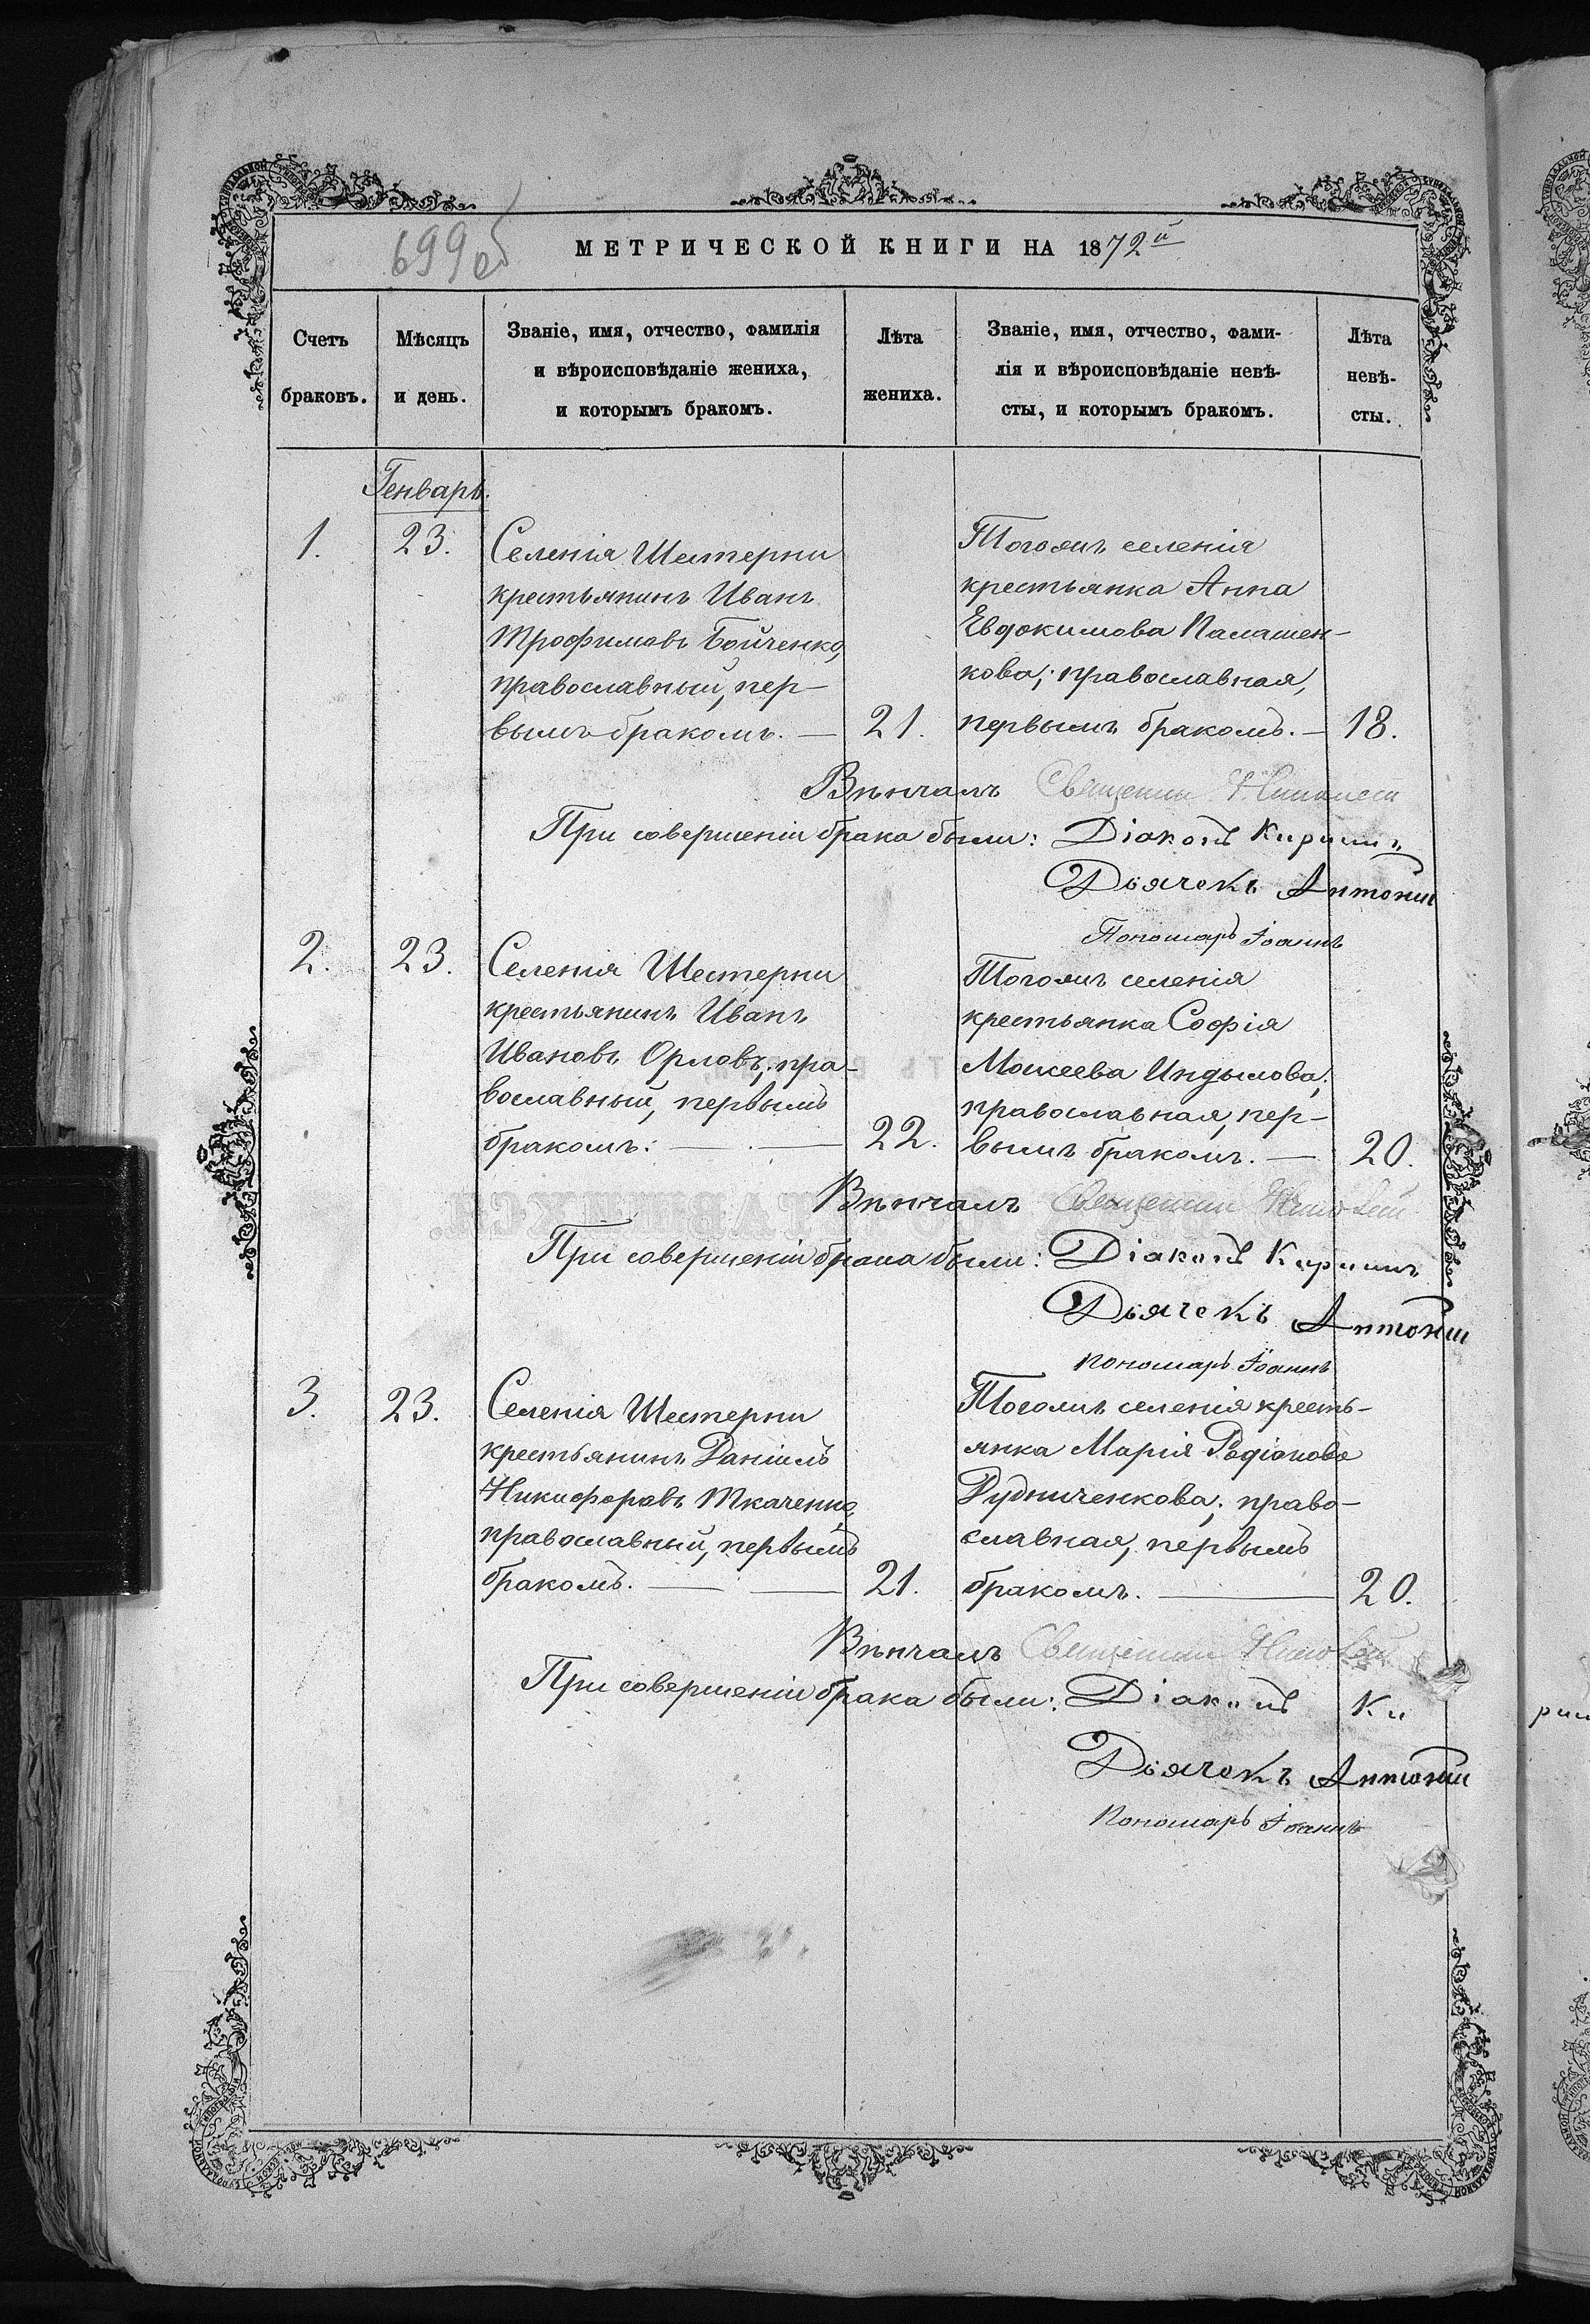 699об
МЕТРИЧЕСКОЙ КНИГИ НА 1872й
Счетъ браковъ.
Мѣсяцъ и день.
Званіе, имя, отчество, фамилія
и вѣроисповѣданіе жениха,
и которымъ бракомъ.
Лѣта жениха.
Званіе, имя, отчество, фами-
лія и вѣроисповѣданіе невѣ-
сты, и которымъ бракомъ.
Лѣта невѣ-
сты.
Генварь.
1.
23.
Селенія Шестерни
крестьянинъ Иванъ
Трофимовъ Бойченко,
православный, пер-
вымъ бракомъ. —
21.
Тогожъ селенія
крестьянка Анна
Евдокимова Палашен-
кова; православная,
первымъ бракомъ. —
18.
Вѣнчалъ Священник
При совершеніи брака были: Діаконъ Кирилъ
Дьячекъ Антоній
Пономарь Іоаннъ
2.
23.
Селенія Шестерни
крестьянинъ Иванъ
Ивановъ Орловъ, пра-
вославный, первымъ
бракомъ: —
22.
Тогожъ селенія
крестьянка Софія
Моисеева Индылова;
православная, пер-
вымъ бракомъ. —
20.
Вѣнчалъ Священник
При совершеніи брака были: Діаконъ Кирилъ
Дьячекъ Антоній
пономарь Іоаннъ
3.
23.
Селенія Шестерни
крестьянинъ Даніилъ
Никифоровъ Ткаченко,
православный, первымъ
бракомъ. —
21.
Тогожъ селенія кресть-
янка Марія Родіонова
Рудниченкова; право-
славная, первымъ
бракомъ. —
20.
Вѣнчалъ Священник
При совершеніи брака были: Діаконъ Ки
Дьячокъ Антоній
пономарь Іоаннъ